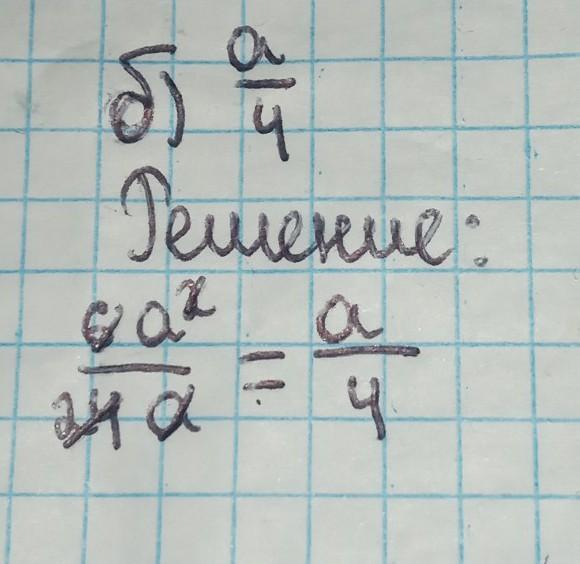 б) a/4
Решение:
6a²/24a = a/4